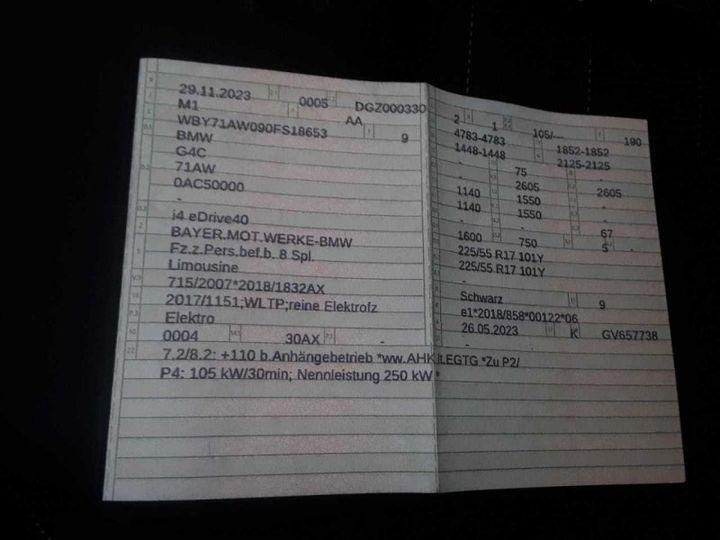 29.11.2023 0005 DGZ000330
M1 AA
WBY71AW090FS18653 9
BMW
G4C
71AW
0AC50000
-
i4 eDrive40
BAYER.MOT.WERKE-BMW
Fz.z.Pers.bef.b. 8 Spl.
Limousine
715/2007*2018/1832AX
2017/1151;WLTP;reine Elektrofz
Elektro
0004 30AX -
2 1 105/--- 190
4783-4783 1852-1852
1448-1448 2125-2125
- 75 -
- 2605 2605
1140 1550 -
1140 1550 -
- - 67
1600 750 5 -
225/55 R17 101Y
225/55 R17 101Y
-
Schwarz 9
e1*2018/858*00122*06
26.05.2023 K GV657738
- -
7.2/8.2: +110 b.Anhängebetrieb *ww.AHK *Zu P2/
P4: 105 kW/30min; Nennleistung 250 kW *